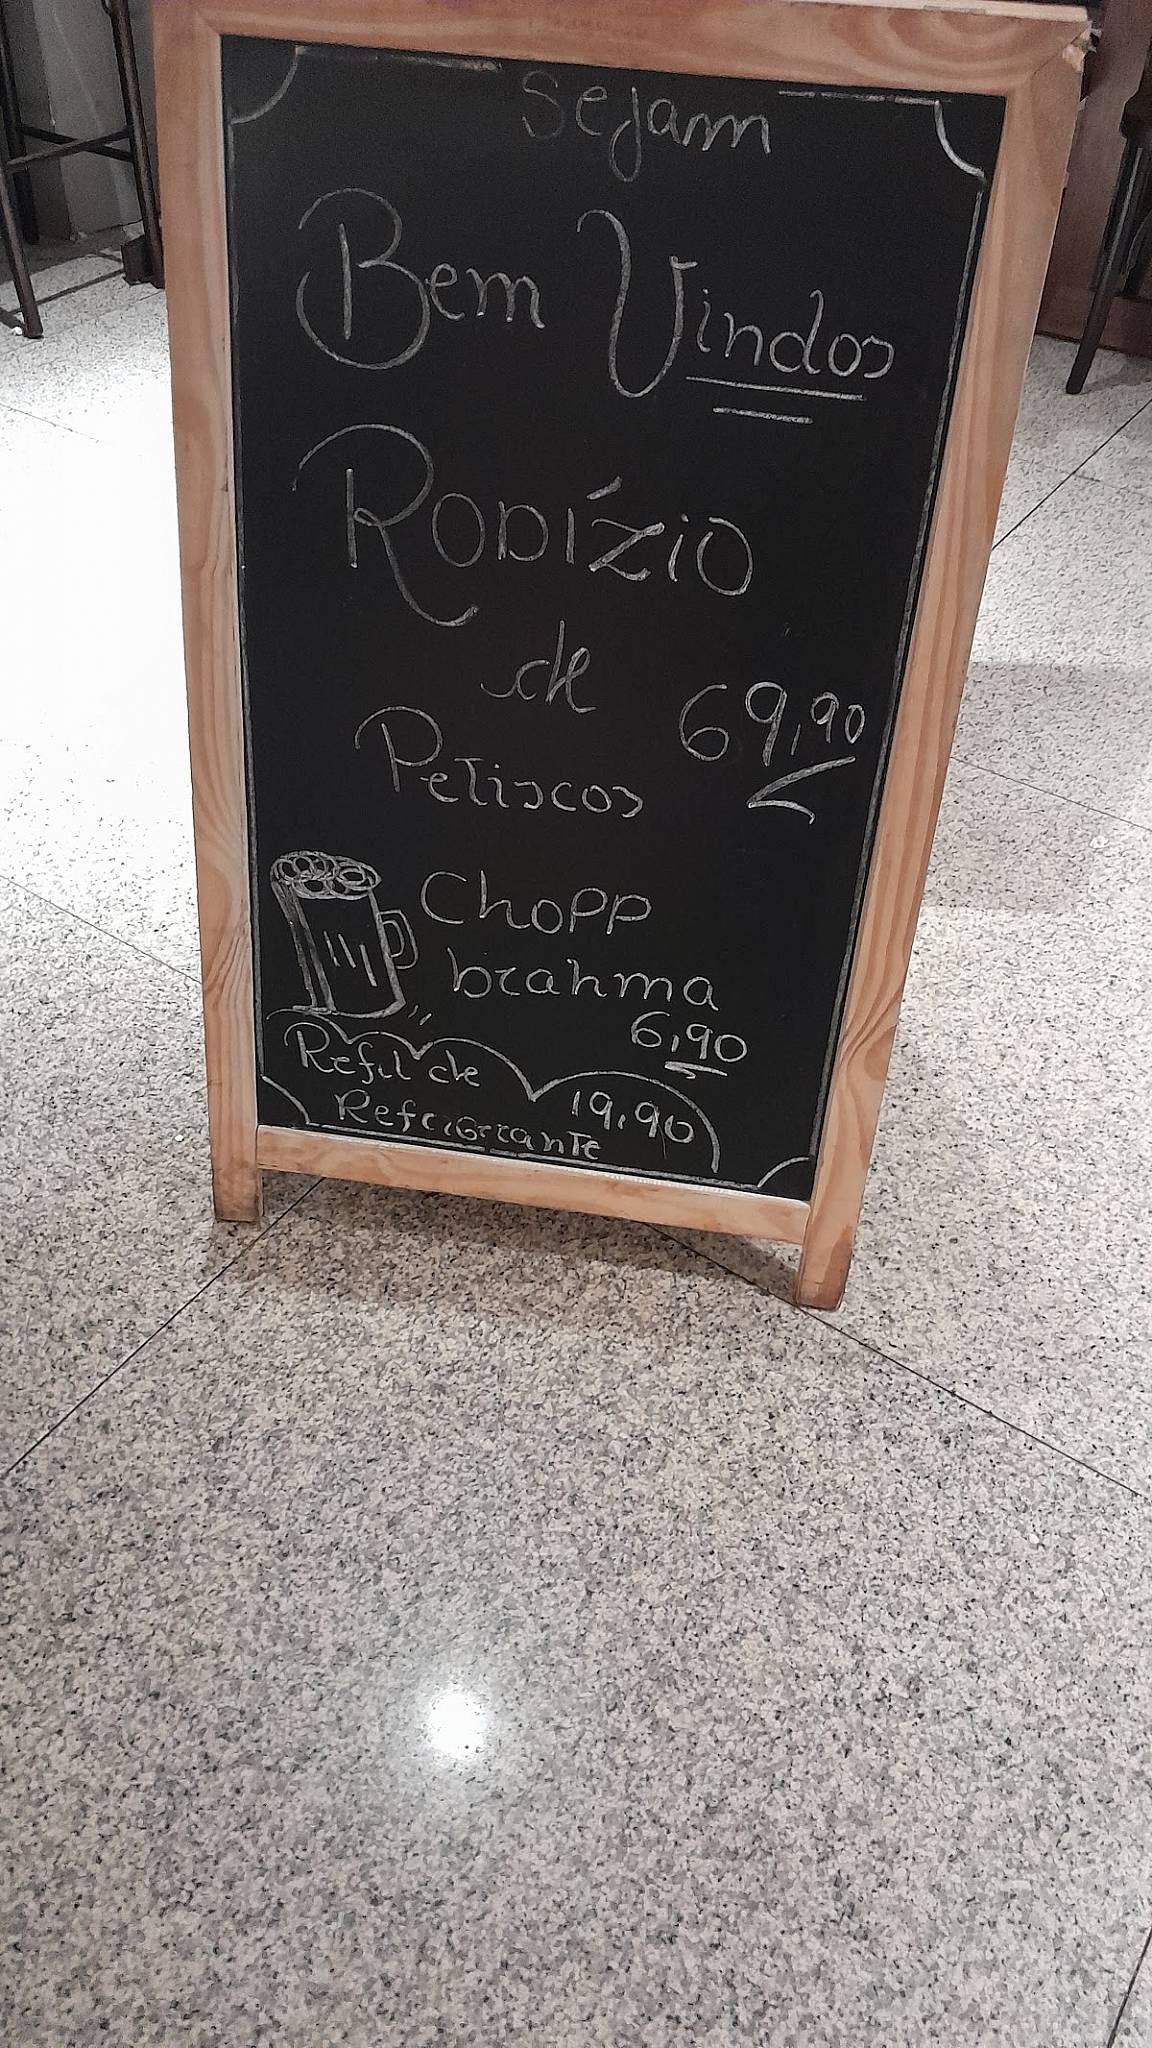 Sejam
Bem Vindos
RODÍZiO
de
69,90
Petiscos
Chopp
brahma
6,90
Refil de
19,90
Refrigerante